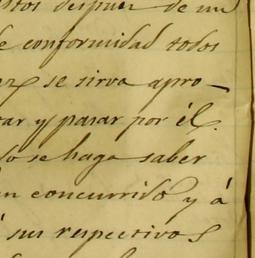 stos despues de un
de conformidad todos
se sirva apro-
var y pasar por él.
se haga saber
an concurrido y á
á sus respectivos